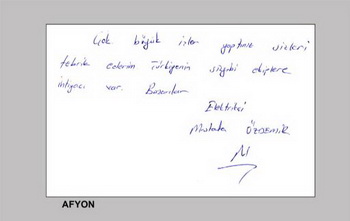 Çok büyük işler yaptınız sizleri
tebrik ederim Türkiyenin sizgibi ekiplere
ihtiyacı var. Başarılar
Elektrikçi
Mustafa ÖZDEMİR
AFYON